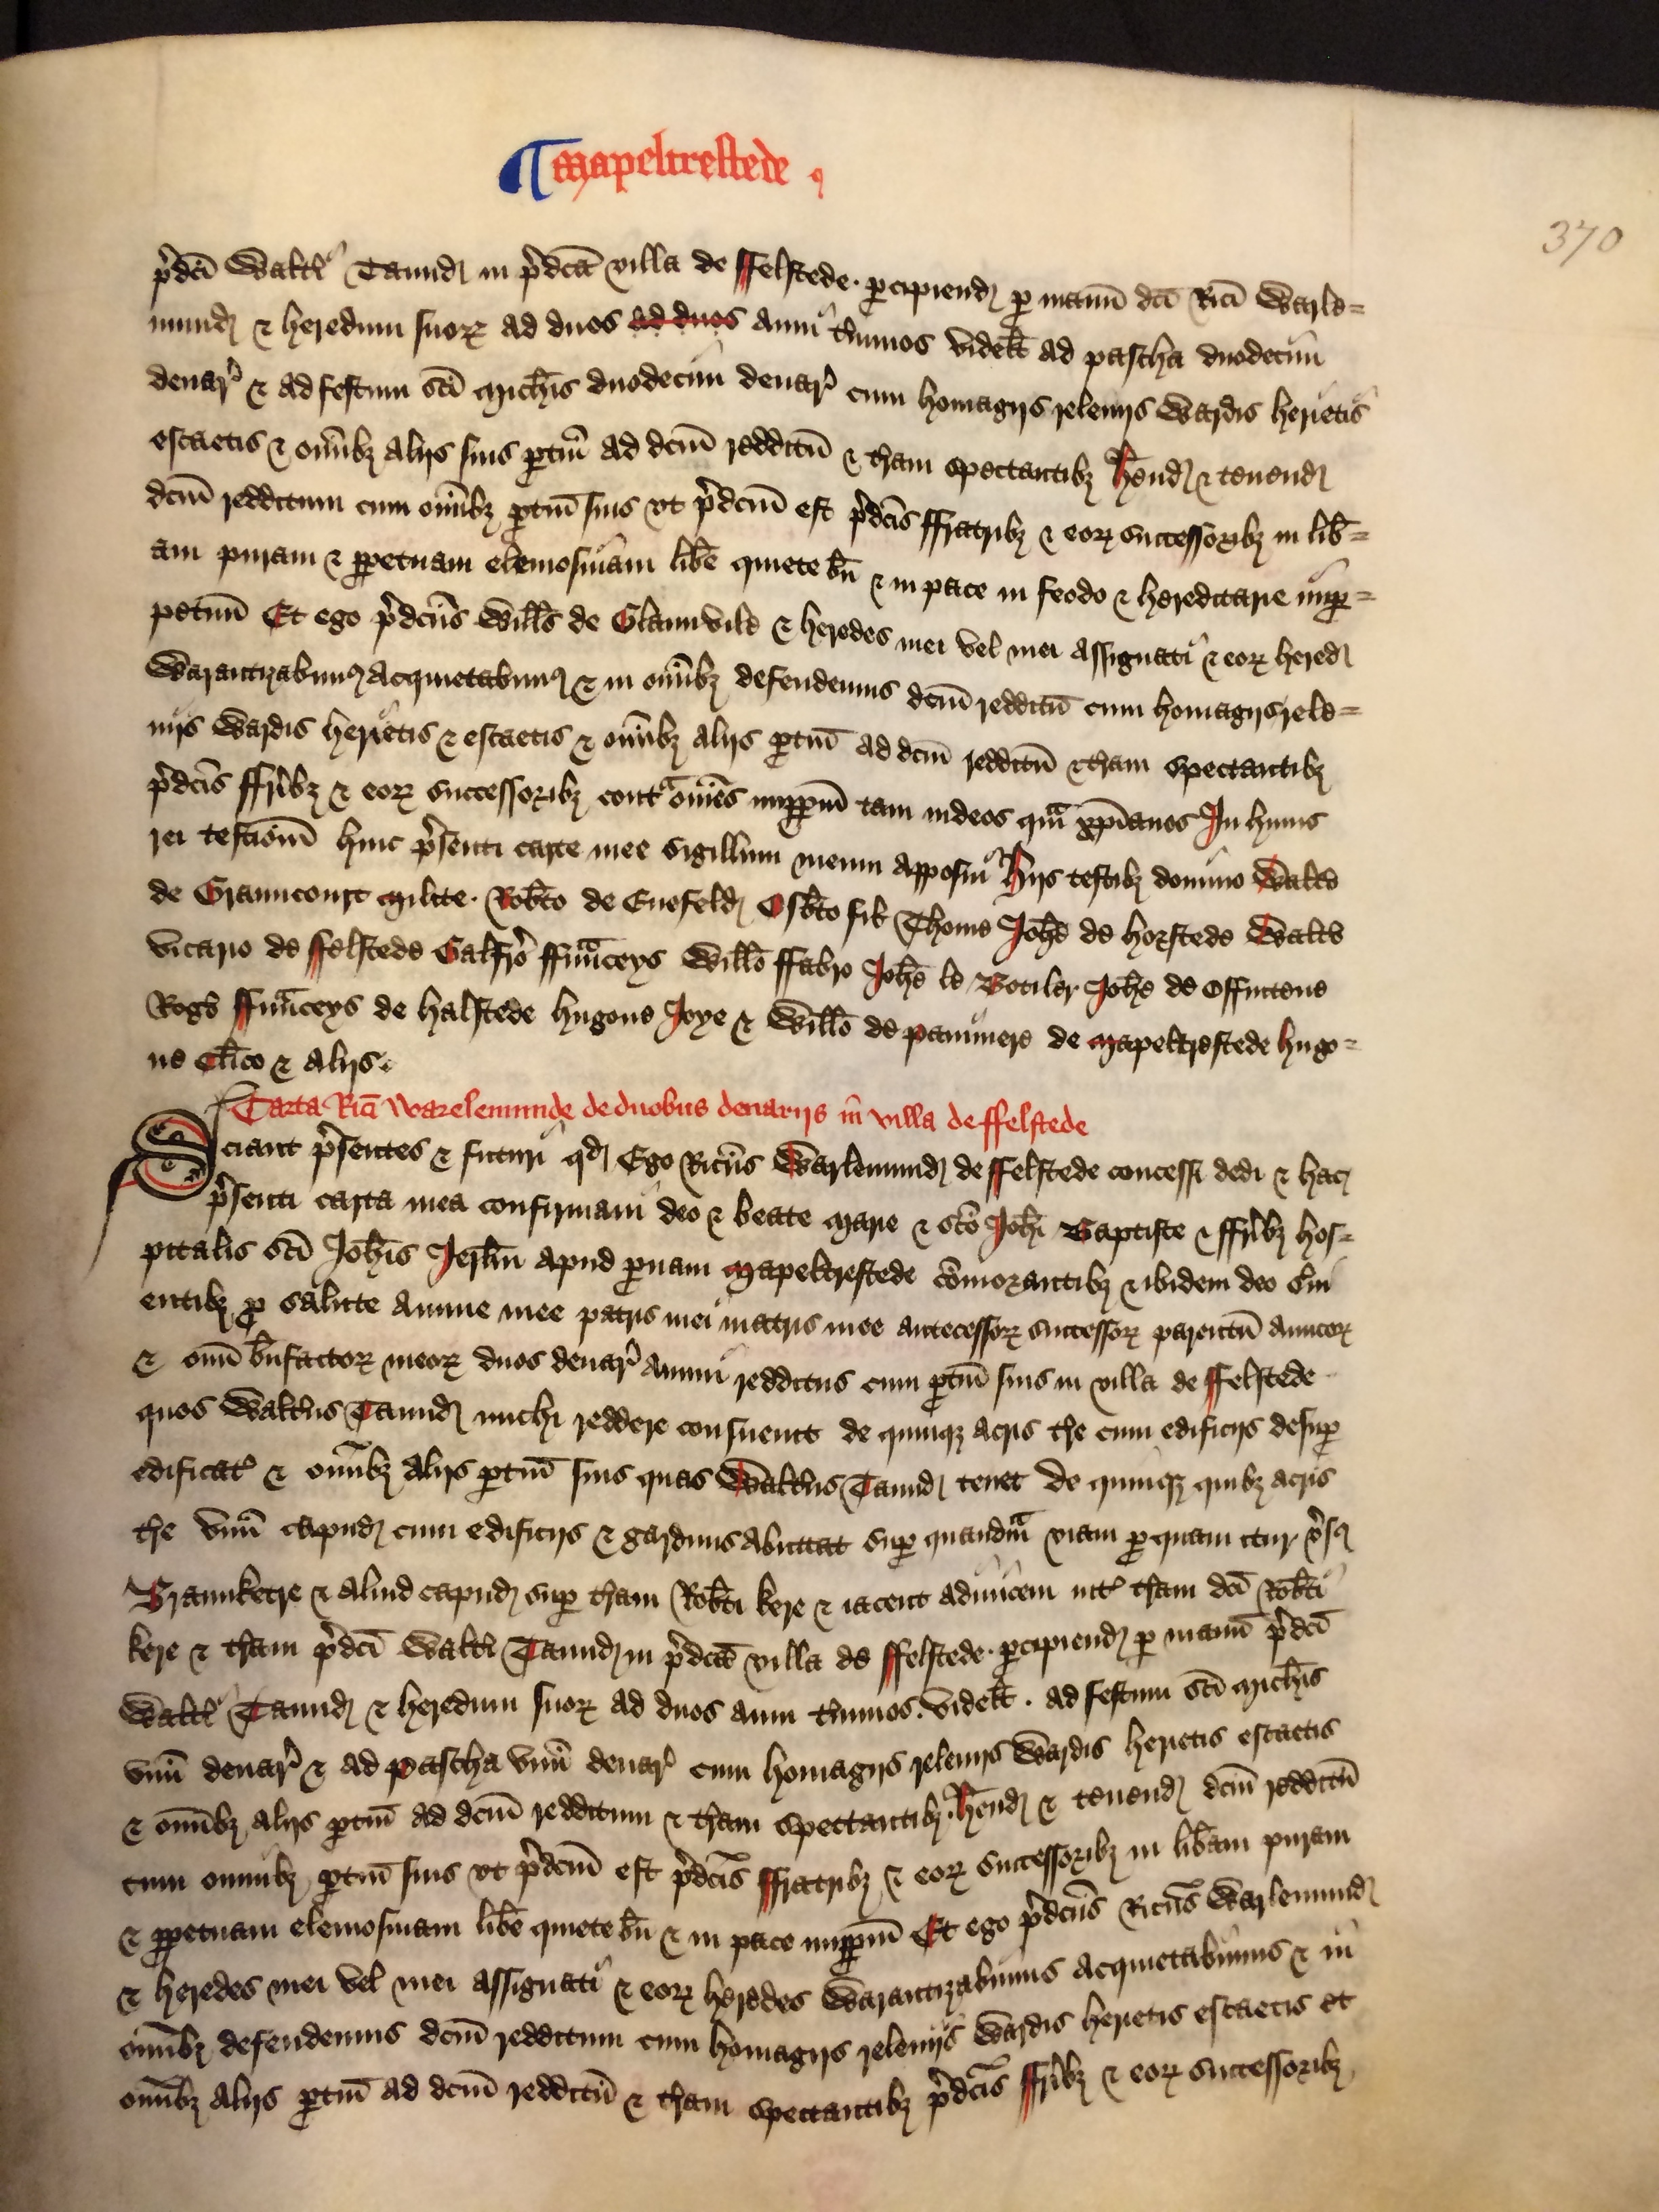 ¶ Mapeltrestede
370
p̄dc̄i Walt̄i Taund in p̄dc̄a villa de ffelstede . ꝑcipiend ꝑ manū dc̄i Ric̄i Warle=
mund ⁊ heredum suoꝝ ad duos ad duos anni t̄minos videlt̄ ad pascha duodecim
denar̄ ⁊ ad festum sc̄i Mich̄is duodecim denar̄ cum homagijs releuijs Wardis herietis
escaetis ⁊ om̄ibꝫ alijs suis ꝑtin̄ ad dc̄m redditū ⁊ t̄ram spectantibꝫ h̄end ⁊ tenend
dc̄m redditum cum om̄ibꝫ ꝑtin̄ suis vt p̄dc̄m est p̄dc̄is ffratribꝫ ⁊ eoꝝ successoribꝫ in lib̄=
am puram ⁊ ꝑpetuam elemosinam lib̄e quiete bn̄ ⁊ in pace in feodo ⁊ hereditarie inꝑ=
petuū Et ego p̄dc̄us Wills̄ de Glaunvile ⁊ heredes mei vel mei assignati ⁊ eoꝝ hered
Warantizabimꝰ Acquietabimꝰ ⁊ in om̄ibꝫ defendemus dc̄m redditū cum homagijs rele=
uijs Wardis herietis ⁊ escaetis ⁊ om̄ibꝫ alijs ꝑtin̄ ad dc̄m redditū ⁊ t̄ram spectantibꝫ
p̄dc̄is ffr̄ibꝫ ⁊ eoꝝ successoribꝫ contᵃ om̄es inꝑpm̄ tam iudeos qm̄ xp̄ianos In huius
rei testiom̄ huic p̄senti carte mee sigillum meum apposui Hijs testibꝫ domino Walt̄o
de Graunconrt milite . Rob̄to de Enefeld Osb̄to fil̄ Thome Joh̄e de horstede Walt̄o
vicario de ffelstede Galfr̄o ffraunceys Will̄o ffabro Joh̄e le Botiler Joh̄e de Offintone
Roḡo ffraunceys de halstede hugone Joye ⁊ Will̄o de pammere de Mapeltrestede hugo=
ne Cl̄ico ⁊ alijs .
Carta Ric̄i Warelemunde de duobus denarijs in villa de ffelstede
Sciant p̄sentes ⁊ futuri qd Ego Ric̄us Warlemund de ffelstede concessi dedi ⁊ hac
p̄senti carta mea confirmaui deo ⁊ beate Marie ⁊ sc̄o Joh̄i Baptiste ⁊ ffr̄ibꝫ hos=
pitalis sc̄i Joh̄is Jerl̄m apud ꝑuam Mapeltrestede com̄orantibꝫ ⁊ ibidem deo s̄ui
entibꝫ ꝓ salute anime mee patris mei matris mee antecessoꝝ successoꝝ parentū amicoꝝ
⁊ om̄i bn̄factoꝝ meoꝝ duos denar̄ annui redditus cum ꝑtin̄ suis in villa de ffelstede
quos Walt̄us Taund michi reddere consueuit de quinqꝫ acris t̄re cum edificijs desuꝑ
edificat̄ ⁊ om̄ibꝫ alijs ꝑtin̄ suis quas Walt̄us Taund tenet De quinqꝫ quibꝫ acris
t̄re vnū capud cum edificijs ⁊ gardinis abuttat suꝑ quandm̄ viam ꝑ quam itur v̄sꝰ
Braunketre ⁊ aliud capud suꝑ t̄ram Rob̄ti kere ⁊ iacent adinuicem int̄ t̄ram dc̄i Rob̄ti
kere ⁊ t̄ram p̄dc̄i Walt̄i Taund in p̄dc̄a villa de ffelstede . ꝑcipiend ꝑ manū p̄dc̄i
Walt̄i Taund ⁊ heredum suoꝝ ad duos anni t̄minos . videlt̄ . ad festum sc̄i Mich̄is
vnū denar̄ ⁊ ad pascha vnū denar̄ cum homagijs releuijs Wardis herietis escaetis
⁊ om̄ibꝫ alijs ꝑtin̄ ad dc̄m redditum ⁊ t̄ram spectantibꝫ . h̄end ⁊ tenend dc̄m redditū
cum omnibꝫ ꝑtin̄ suis vt p̄dc̄m est p̄dc̄is ffratribꝫ ⁊ eoꝝ successoribꝫ in lib̄am puram
⁊ ꝑpetuam elemosinam lib̄e quiete bn̄ ⁊ in pace inꝑpm̄ Et ego p̄dc̄us Ric̄us Warlemund
⁊ heredes mei vel mei assignati ⁊ eoꝝ heredes Warantizabimus acquietabimus ⁊ in
om̄ibꝫ defendemus dc̄m redditum cum homagijs releuijs Wardis herietis escaetis et
om̄ibꝫ alijs ꝑtin̄ ad dc̄m redditū ⁊ t̄ram spectantibꝫ p̄dc̄is ffr̄ibꝫ ⁊ eoꝝ successoribꝫ